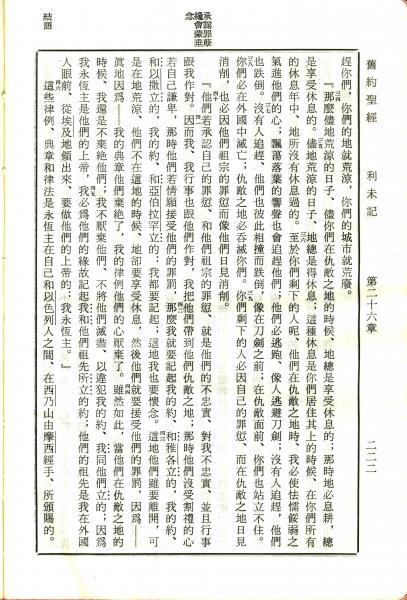 舊約聖經　利未記　第二十六章　二二二
趕你們，你們的地就荒涼，你們的城市就荒廢。
『那麼儘地荒涼的日子、儘你們在仇敵之地的時候、地總是享受休息的；那時地必息耕，總
是享受休息的。儘地荒涼的日子、地總是得休息；這種休息是你們居住其上的時候、在你們所有
的休息年中、地所沒有休息過的。至於你們剩下的人呢、他們在仇敵之地時、我必使怯懦餒弱之
氣進他們的心；飄蕩落葉的響聲也會追趕他們；他們必逃跑、像人逃避刀劍，沒有人追趕，他們
也跌倒。沒有人追趕、他們也彼此相撞而跌倒，像在刀劍之前；在仇敵面前、你們也站立不住。
你們必在外國中滅亡；仇敵之地必吞滅你們。你們剩下的人必因自己的罪愆、而在仇敵之地日見
消削，也必因他們祖宗的罪愆而像他們日見消削。
承認罪孽
會蒙垂念
『他們若承認自己的罪愆、和他們祖宗的罪愆、就是他們的不忠實、對我不忠實、並且行事
跟我作對。因而我、我行事也跟他們作對，我把他們帶到仇敵之地；那時他們沒受割禮的心
若自己謙卑，那時他們若情願接受他們的罪罰，那麼我就要記起我的約、和雅各立的，我的約、
和以撒立的，我的約、和亞伯拉罕立的：我都要記起；這地我也要懷念。這地他們雖要離開，可
是在地荒涼、他們不在這地的時候、地卻要享受休息，然後他們就要接受他們的罪罰，因為——
真地因為——我的典章他們棄絕了，我的律例他們的心厭棄了。雖然如此，當他們在仇敵之地的
時候、我還是不棄絕他們；我不厭棄他們、不將他們滅盡、以違犯我的約、我同他們立的；因為
我永恆主是他們的上帝。我必為他們的緣故記起我和他們祖先所立的約；他們的祖先是我在外國
人眼前、從埃及地領出來、要做他們的上帝的：我永恆主。』
結語
這些律例、典章和律法是永恆主在自己和以色列人之間、在西乃山由摩西經手、所頒賜的。